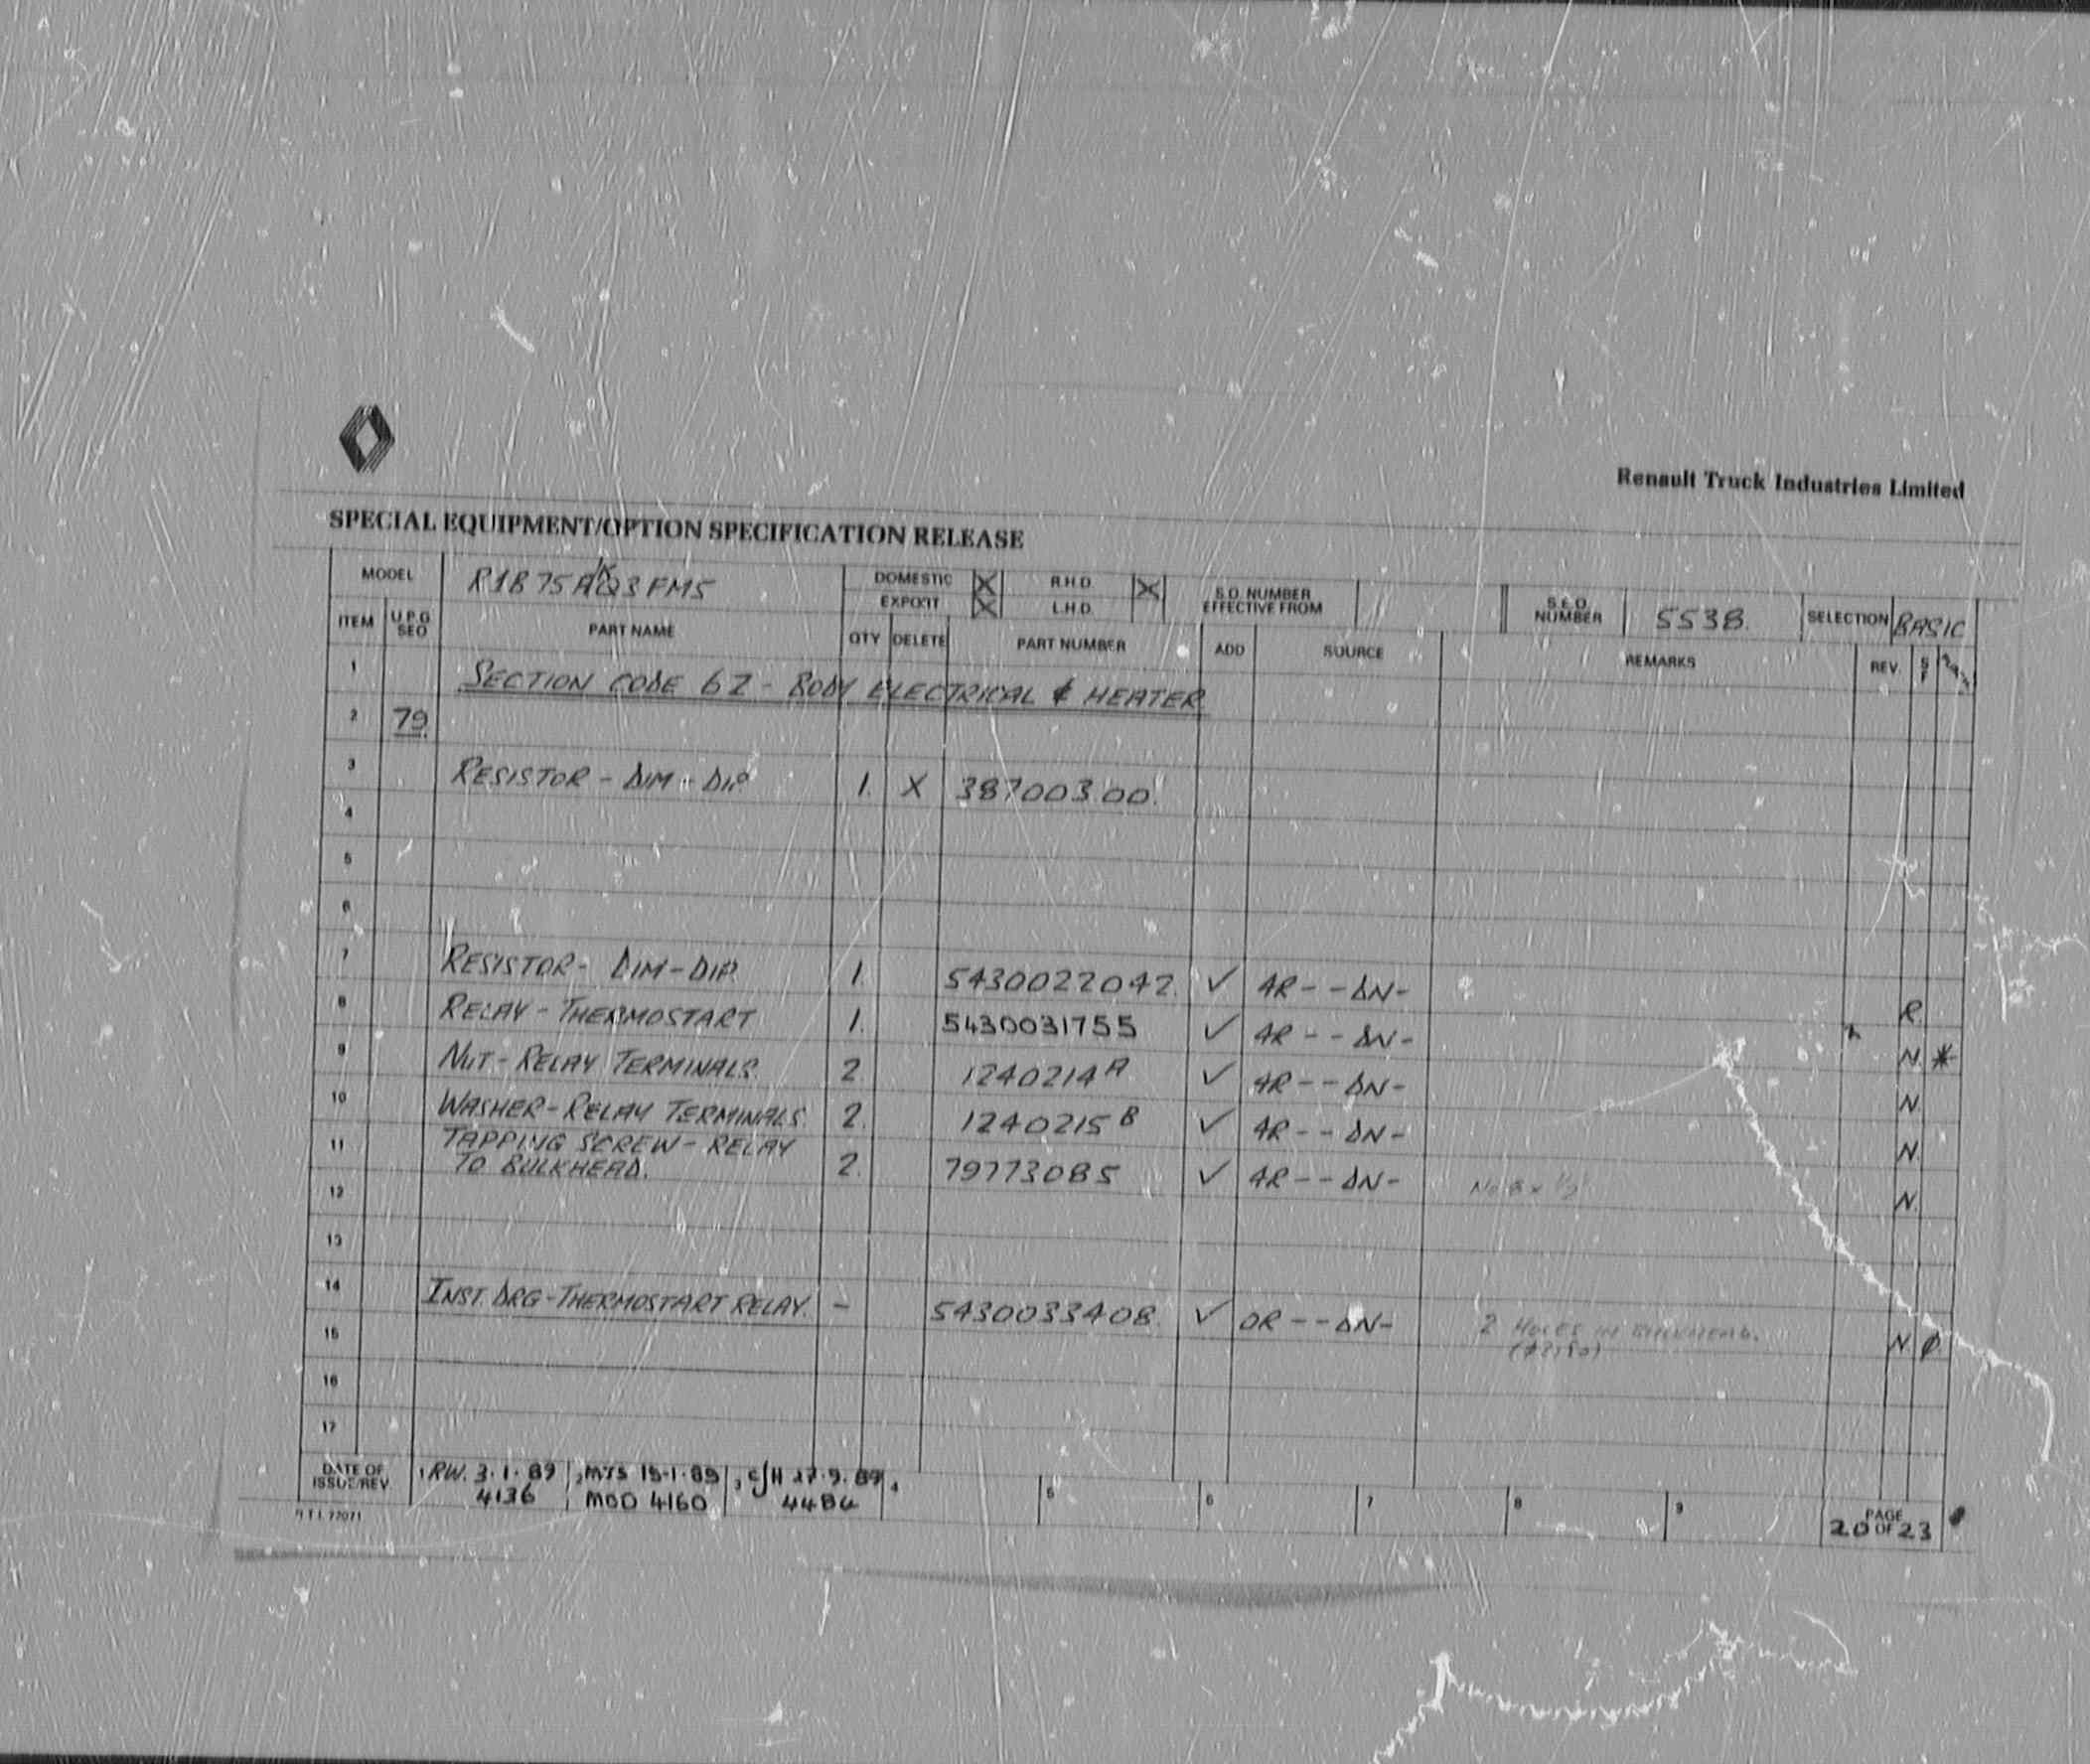 Renault Truck Industries Limited
SPECIAL EQUIPMENT/OPTION SPECIFICATION RELEASE
MODEL DOMESTIC X R.H.D. X S.O. NUMBER EFFECTIVE FROM S.E.O. NUMBER 5538 SELECTION BASIC
EXPORT X L.H.D.
ITEM U.P.G SEQ PART NAME QTY DELETE PART NUMBER ADD SOURCE REMARKS REV.
1 SECTION CODE 62 - BODY ELECTRICAL & HEATER
2 79
3 RESISTOR - DIM - DIP 1. X 38700300
4
5
6
7 RESISTOR - DIM - DIP. 1. 5430022042 ✓ 4R - - DN - R.
8 RELAY - THERMOSTART 1. 5430031755 ✓ 4R - - DN - N. *
9 NUT - RELAY TERMINALS 2 1240214 A ✓ 4R - - DN - N.
10 WASHER - RELAY TERMINALS 2. 1240215 B ✓ 4R - - DN - N.
11 TAPPING SCREW - RELAY
TO BULKHEAD. 2. 79773085 ✓ 4R - - DN - No 8 x 1/2 N.
12
13
14 INST. DRG - THERMOSTART RELAY. - 5430033408 ✓ DR - - DN - 2 HOLES IN BULKHEAD. N. Ø
15
16
17
DATE OF ISSUE/REV. 1 RW. 3.1.89 2 MTS 15.1.89 3 CJH 27.9.89 4 5 6 7 8 9 PAGE
4136 MOD 4160 4484 20 OF 23